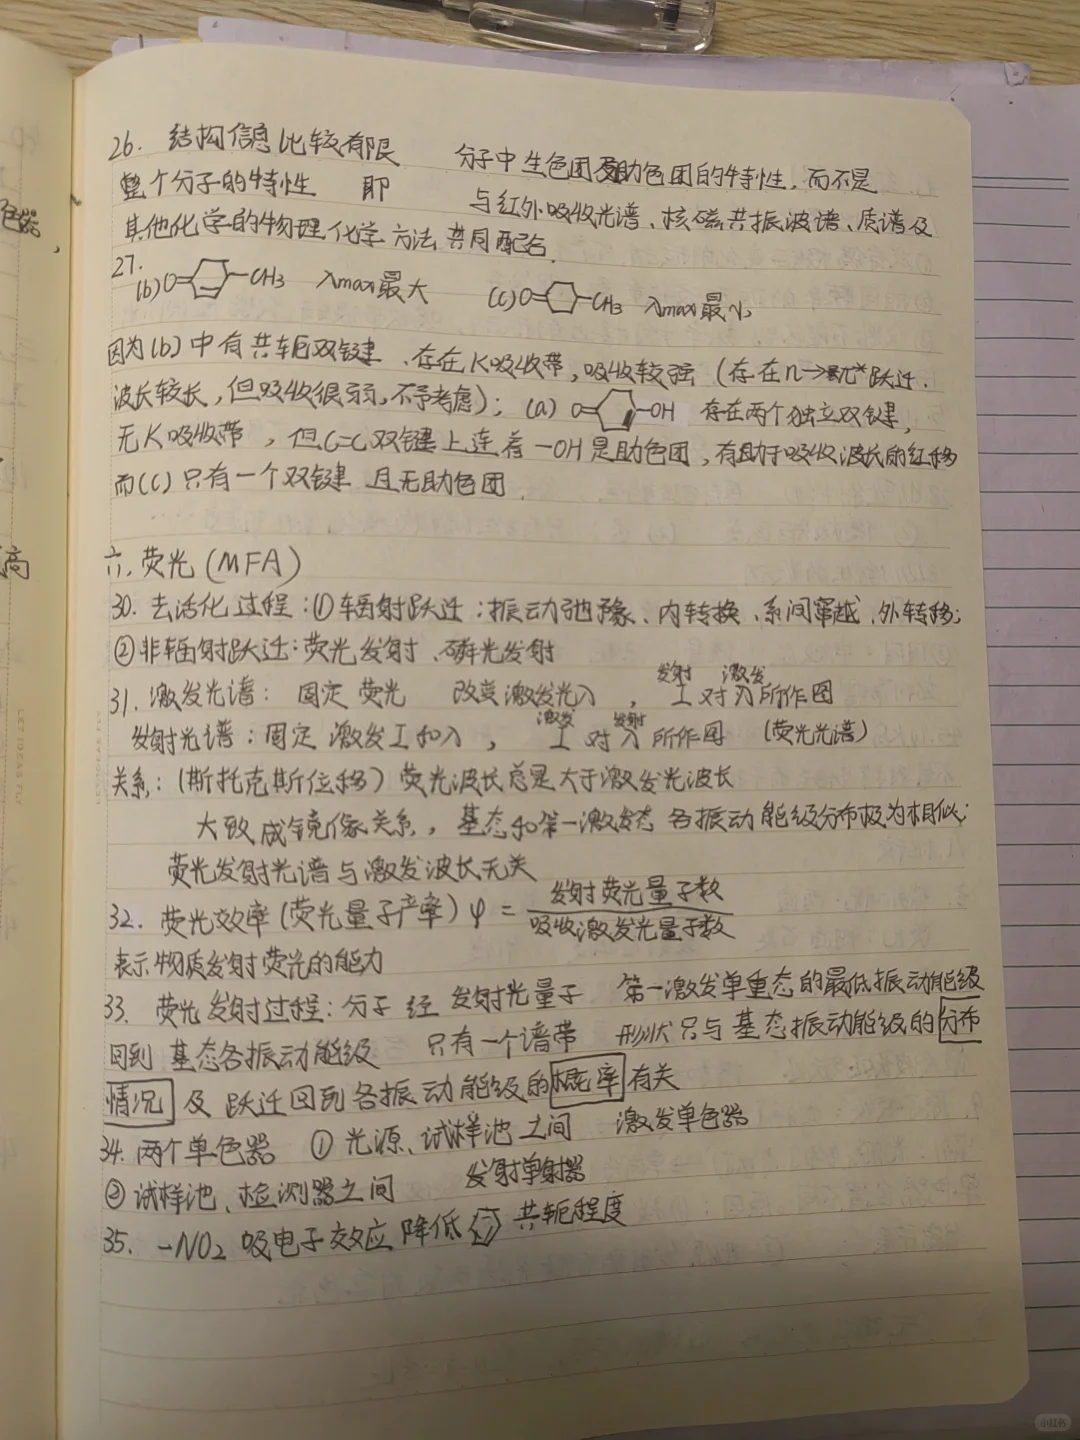 26. 结构信息比较有限 分子中生色团及助色团的特性,而不是
整个分子的特性 即 与红外吸收光谱、核磁共振波谱、质谱及
其他化学的物理化学方法共同配合.
27.
(b)O= -CH3 λmax最大 (c)O= -CH3 λmax最小
因为(b)中有共轭双键、存在K吸收带,吸收较强(存在n→π*跃迁.
波长较长,但吸收很弱,不予考虑);(a) O= -OH 存在两个独立双键,
无K吸收带,但C=C双键上连着-OH是助色团,有助于吸收波长的红移
而(C)只有一个双键 且无助色团.
六.荧光(MFA)
30. 去活化过程:①辐射跃迁:振动弛豫、内转换、系间窜越、外转移;
②非辐射跃迁:荧光发射、磷光发射
发射 激发
31. 激发光谱: 固定荧光 改变激发光λ, I对λ所作图
激发 发射
发射光谱:固定激发I和λ, I对λ所作图 (荧光光谱)
关系:(斯托克斯位移)荧光波长总是大于激发光波长
大致成镜像关系,基态和第一激发态各振动能级分布极为相似;
荧光发射光谱与激发波长无关
32. 荧光效率(荧光量子产率)φ = 发射荧光量子数
吸收激发光量子数
表示物质发射荧光的能力
33. 荧光发射过程:分子经发射光量子 第一激发单重态的最低振动能级
回到基态各振动能级 只有一个谱带 形状只与基态振动能级的分布
情况及跃迁回到各振动能级的概率有关
34. 两个单色器 ①光源、试样池之间 激发单色器
②试样池、检测器之间 发射单射器
35. -NO2 吸电子效应降低 共轭程度
小红书